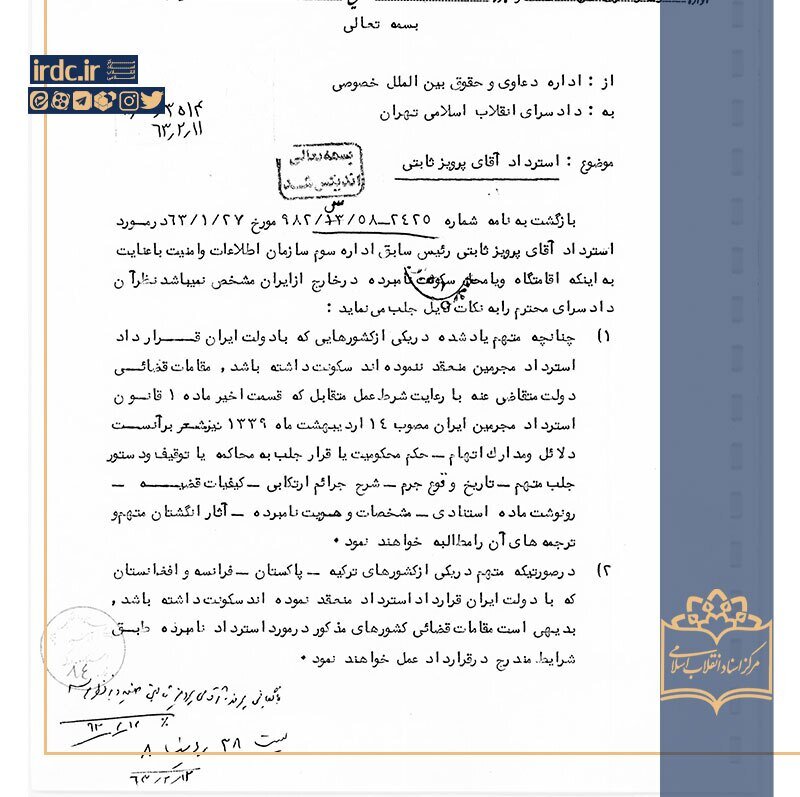 بسمه تعالی
irdc.ir
۳۵۱۴
۶۳٫۲٫۱۱
از : اداره دعاوی و حقوق بین الملل خصوصی
به : دادسرای انقلاب اسلامی تهران
بسمه تعالی
اندیکس شد
موضوع : استرداد آقای پرویز ثابتی
بازگشت به نامه شماره ۲۴۲۵–۹۸۲/۱۳/۵۸ مورخ ۶۳/۱/۲۷ درمورد
استرداد آقای پرویز ثابتی رئیس سابق اداره سوم سازمان اطلاعات وامنیت باعنایت
به اینکه اقامتگاه ویامحل سکونت نامبرده درخارج ازایران مشخص نمیباشد نظرآن
دادسرای محترم رابه نکات ذیل جلب می نماید :
۱) چنانچه متهم یادشده دریکی ازکشورهایی که بادولت ایران قرارداد
استرداد مجرمین منعقد ننموده اند سکونت داشته باشد , مقامات قضائی
دولت متقاضی عنه با رعایت شرط عمل متقابل که قسمت اخیر ماده ۱ قانون
استرداد مجرمین ایران مصوب ۱۴ اردیبهشت ماه ۱۳۳۹ نیزشعر برآنست
دلائل ومدارك اتهام – حکم محکومیت یا قرار جلب به محاکمه یا توقیف ودستور
جلب متهم – تاریخ وقوع جرم – شرح جرائم ارتکابی – کیفیات قضیه –
رونوشت ماده استنادی – مشخصات و هویت نامبرده – آثار انگشتان متهم و
ترجمه های آن رامطالبه خواهند نمود ۰
۲) درصورتیکه متهم دریکی ازکشورهای ترکیه – پاکستان – فرانسه و افغانستان
که با دولت ایران قرارداد استرداد منعقد نموده اند سکونت داشته باشد ,
بدیهی است مقامات قضائی کشورهای مذکور درمورد استرداد نامبرده طبق
شرایط مندرج درقرارداد عمل خواهند نمود ۰
مرکز اسناد انقلاب اسلامی
۸۴
۶۳/۲/۱۲
لیست ۳۸ ردیف ۸
۶۳/۲/۱۲